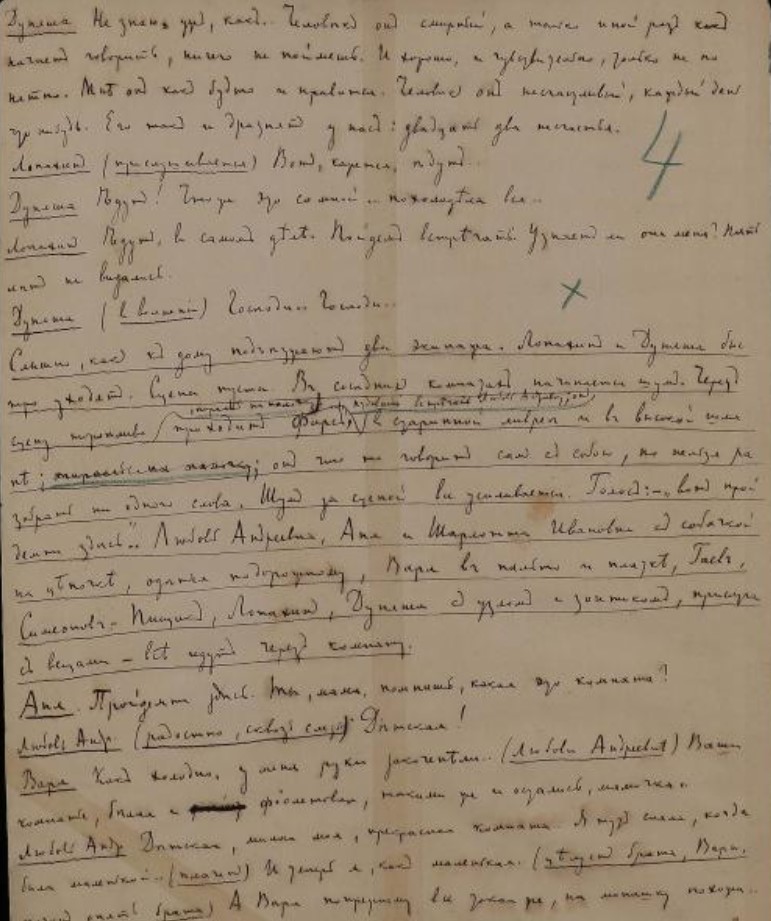 Дуняша Не знаю ужъ, какъ.. Человѣкъ онъ смирный, а только иной разъ какъ
начнетъ говорить, ничего не поймешь. И хорошо, и чувствительно, только не по
нятно. Мнѣ онъ какъ будто и нравится. Человѣкъ онъ несчастливый, каждый день
что нибудь. Его такъ и дразнятъ у насъ: двадцать два несчастья.
4
Лопахинъ (прислушивается) Вотъ, кажется, ѣдутъ..
Дуняша Ѣдутъ! Что это со мной.. похолодѣла вся..
Лопахинъ Ѣдутъ, въ самомъ дѣлѣ. Пойдемъ встрѣчать. Узнаетъ ли она меня? Пять
лѣтъ не видались.
Дуняша (въ волненіи)
x
Слышно, какъ къ дому подъѣзжаютъ два экипажа. Лопахинъ и Дуняша быс
тро уходятъ. Сцена пуста. Въ сосѣднихъ комнатахъ начинается шумъ. Черезъ
сцену торопливо проходитъ Фирсъ, въ старинной ливреѣ и въ высокой шля
пѣ; онъ что то говоритъ самъ съ собою, но нельзя ра
зобрать ни одного слова. Шумъ за сценой все усиливается. Голосъ: "вотъ прой
демте здѣсь".. Любовь Андреевна, Аня и Шарлотта Ивановна съ собачкой
на цѣпочкѣ, одѣты подорожному, Варя въ пальто и платкѣ, Гаевъ,
Симеоновъ-Пищикъ, Лопахинъ, Дуняша съ узломъ и зонтикомъ, прислуга
съ вещами – всѣ идутъ черезъ комнату.
Аня. Пройдемте здѣсь. Ты, мама, помнишь, какая это комната?
Любовь Андр. (радостно, сквозь слезы) Дѣтская!
Варя Какъ холодно, у меня руки закоченѣли.. (Любови Андреевнѣ) Ваши
комнаты, бѣлая и фіолетовая, такими же и остались, мамочка.
Любовь Андр Дѣтская, милая моя, прекрасная комната.. Я тутъ спала, когда
была маленькой.. (плачетъ) И теперь я, какъ маленькая. (цѣлуетъ брата, Варю,
опять брата) А Варя попрежнему все такая же, на монашку похожа..